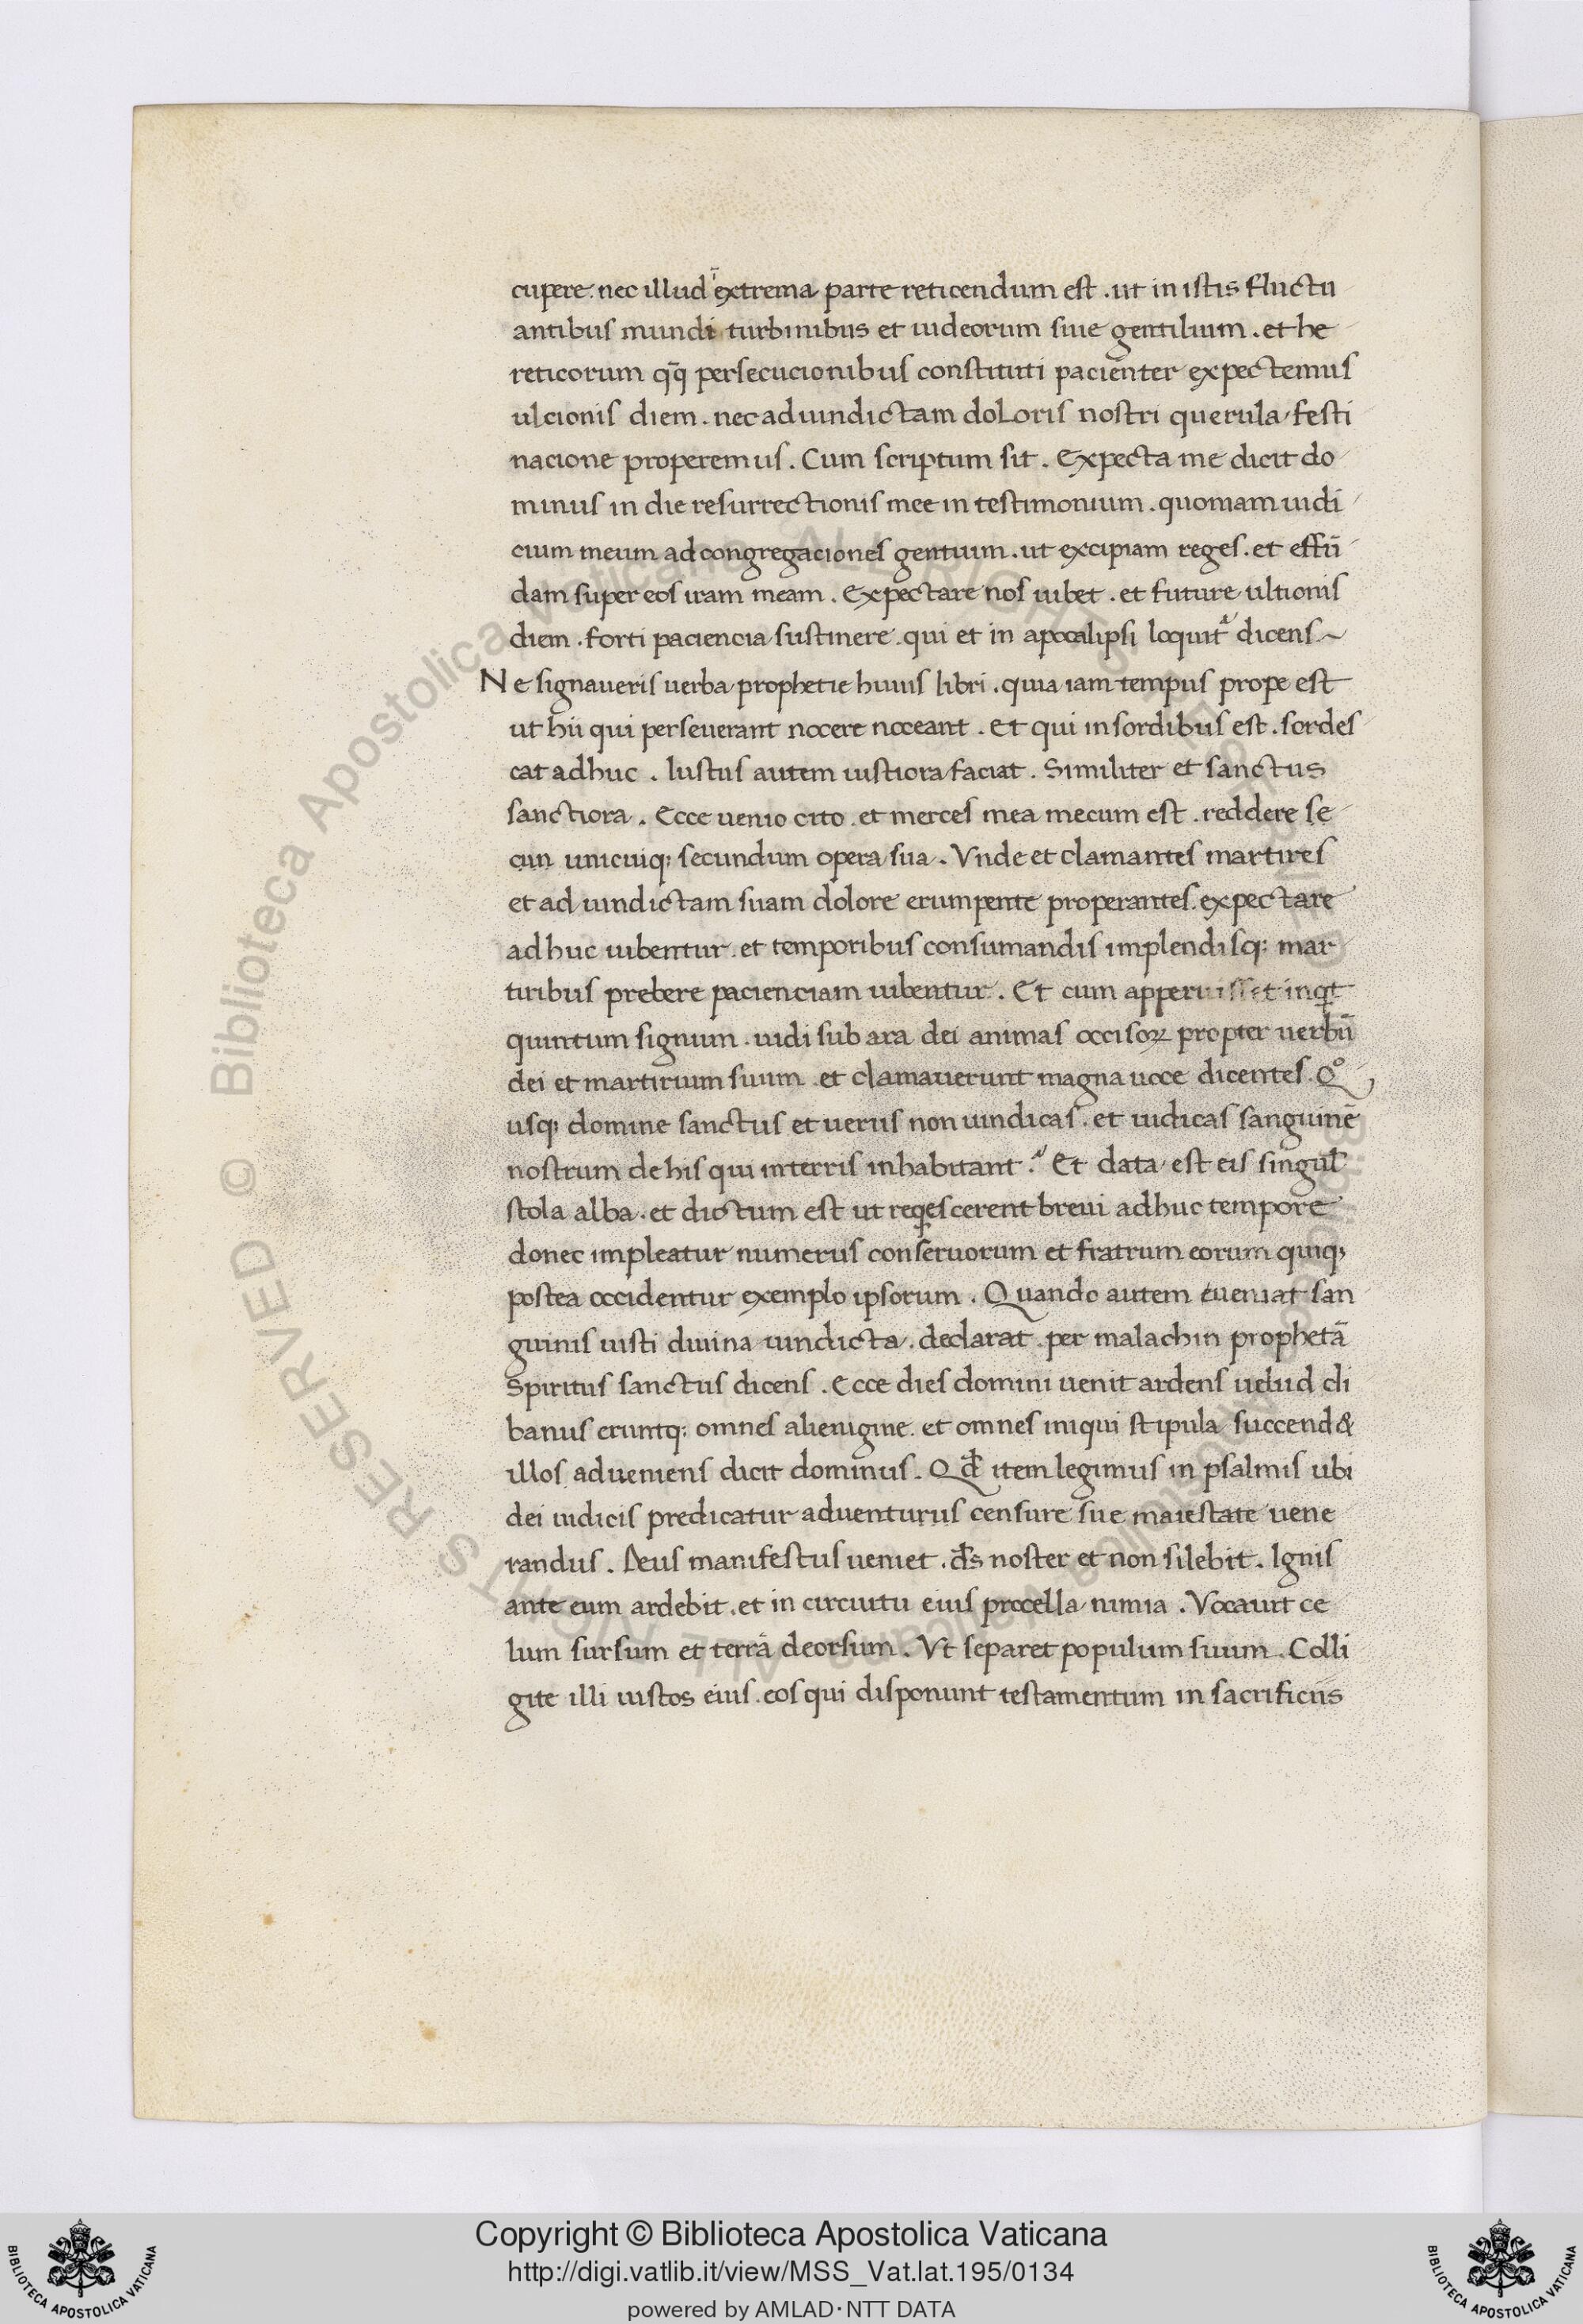 cupere. nec illud ī extrema parte reticendum est. ut in istis fluctu
antibus mundi turbinibus et iudeorum siue gentilium. et he
reticorum qq̄ persecucionibus constituti pacienter expectemus
ulcionis diem. nec ad uindictam doloris nostri querula festi
nacione properemus. Cum scriptum sit. Expecta me dicit do
minus in die resurrectionis mee in testimonium. quoniam iudi
cium meum ad congregaciones gentium. ut excipiam reges. et effū
dam super eos iram meam. Expectare nos iubet. et future ultionis
diem. forti paciencia sustinere. qui et in apocalipsi loquit᷑ dicens~
Ne signaueris uerba prophetie huius libri. quia iam tempus prope est
ut hii qui perseuerant nocere noceant. Et qui in sordibus est. sordes
cat adhuc. Iustus autem iustiora faciat. Similiter et sanctus
sanctiora. Ecce uenio cito. et merces mea mecum est. reddere se
cun unicuiq; secundum opera sua. Vnde et clamantes martires
et ad uindictam suam dolore erumpente properantes. expectare
adhuc iubentur. et temporibus consumandis implendisq; mar
tiribus prebere pacienciam iubentur. Et cum apperuisset inqt
quintum signum. uidi sub ara dei animas occisoꝝ propter uerbū
dei et martirium suum. et clamauerunt magna uoce dicentes. Qͦ
usq; domine sanctus et uerus non uindicas. et iudicas sanguinē
nostrum de his qui in terris inhabitant? Et data est eis singul̄
stola alba. et dictum est ut reqescerent breui adhuc tempore
donec impleatur numerus conseruorum et fratrum eorum quiq;
postea occidentur exemplo ipsorum. Quando autem eueniat san
guinis iusti diuina uindicta. declarat. per malachin prophetā
Spiritus sanctus dicens. Ecce dies domini uenit ardens uelud cli
banus eruntq; omnes alienigine. et omnes iniqui stipula succend&
illos adueniens dicit dominus. Qđ item legimus in psalmis ubi
dei iudicis predicatur aduenturus censure sue maiestate uene
randus. Deus manifestus ueniet. d̄s noster et non silebit. Ignis
ante eum ardebit. et in circuitu eius procella nimia. Vocauit ce
lum sursum et terrā deorsum. Vt separet populum suum. Colli
gite illi iustos eius. eos qui disponunt testamentum in sacrificiis
Biblioteca Apostolica Vaticana
ALL RIGHTS RESERVED ©
Copyright © Biblioteca Apostolica Vaticana
http://digi.vatlib.it/view/MSS_Vat.lat.195/0134
powered by AMLAD·NTT DATA
BIBLIOTECA APOSTOLICA VATICANA
BIBLIOTECA APOSTOLICA VATICANA